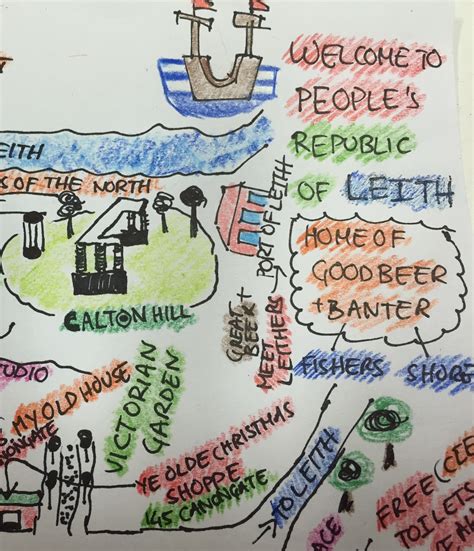 WELCOME TO
PEOPLE'S
REPUBLIC
OF LEITH
EITH
OF THE NORTH
PORT OF LEITH
HOME OF
GOOD BEER
+ BANTER
CALTON HILL
GREAT
BEER +
MEET
LEITHERS
FISHERS
SHORE
STUDIO
MY OLD HOUSE
CANONGATE
VICTORIAN
GARDEN
YE OLDE CHRISTMAS
SHOPPE
145 CANONGATE
TO LEITH
FREE
TOILETS